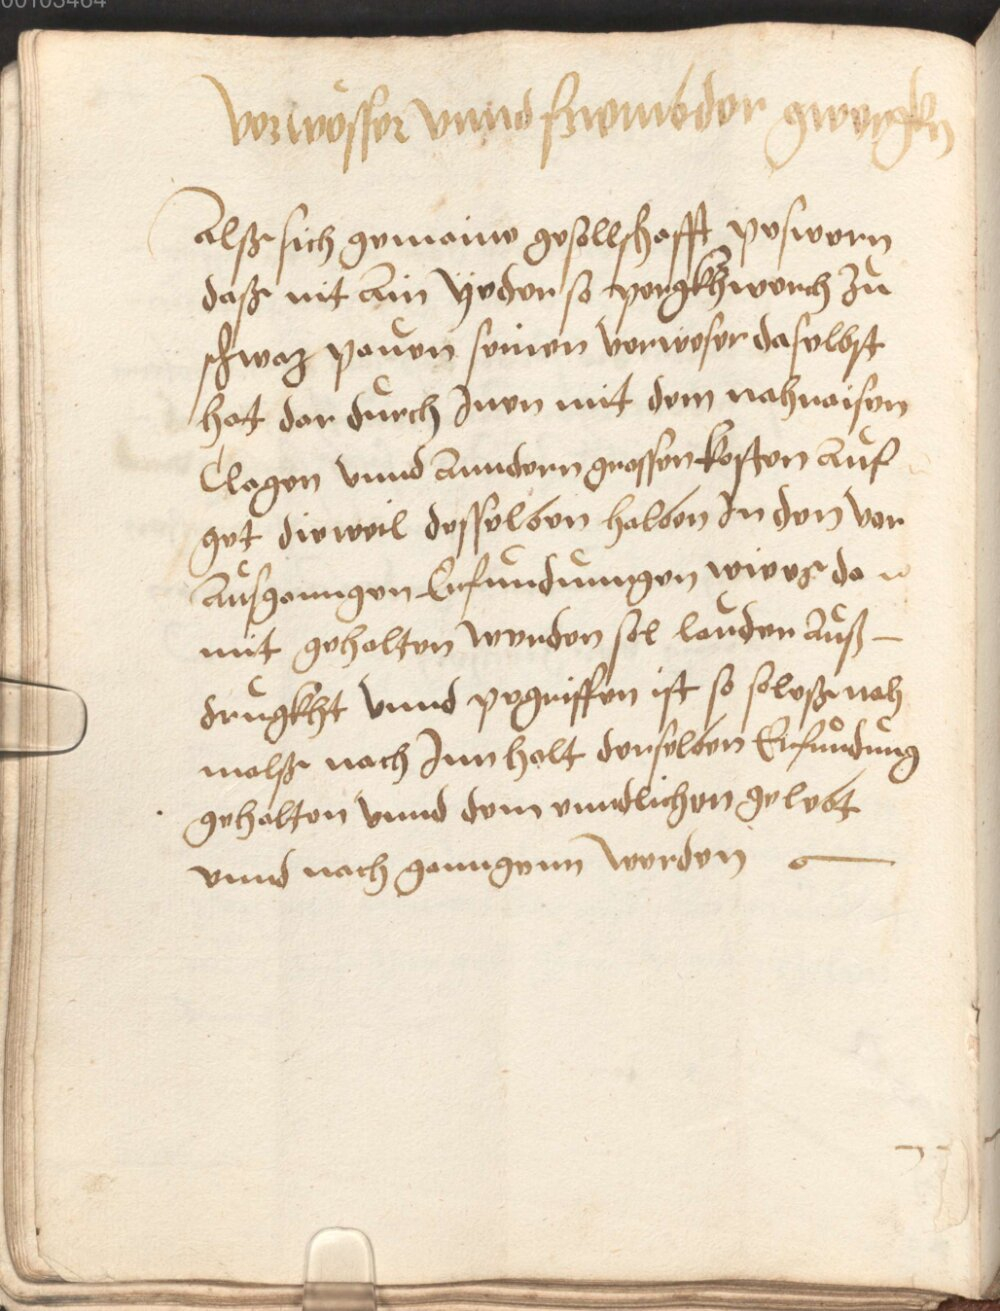 00103464
Verwesser vnnd frembder gwergkn
Alße sich gemaine gesellschafft peswern
daße nit Ain yeder so pergkhwerch zu
schwaz pauen seinen verweser daselbst
hat dar durch Inen mit dem nahraisen
Clagen vnnd Anndern grossen kosten Auf
get dieweil desselben halben In den vor
Ausganngen Erfindungen wie es da
mit gehalten werden sol lauden Auß
drugkht vnnd pegriffen ist so soleße nah
malße nach Innhalt derselben Erfindung
gehalten vnnd dem enndlichen gelebt
vnnd nach ganngenn werden